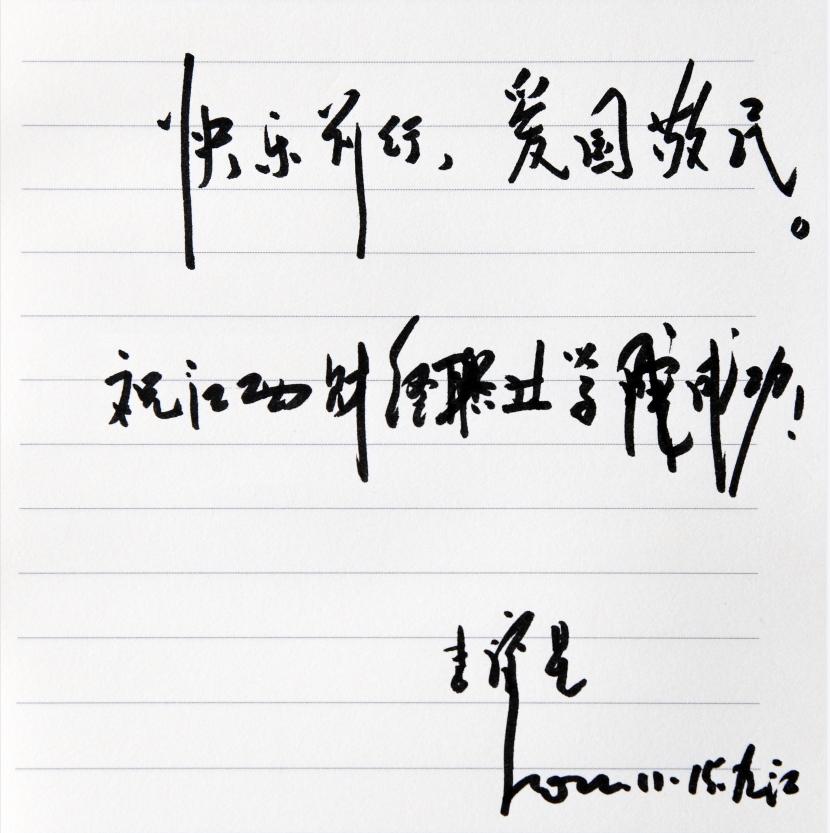 快乐前行，爱国敬民。
祝江西财经职业学院成功！
2022.11.15.九江